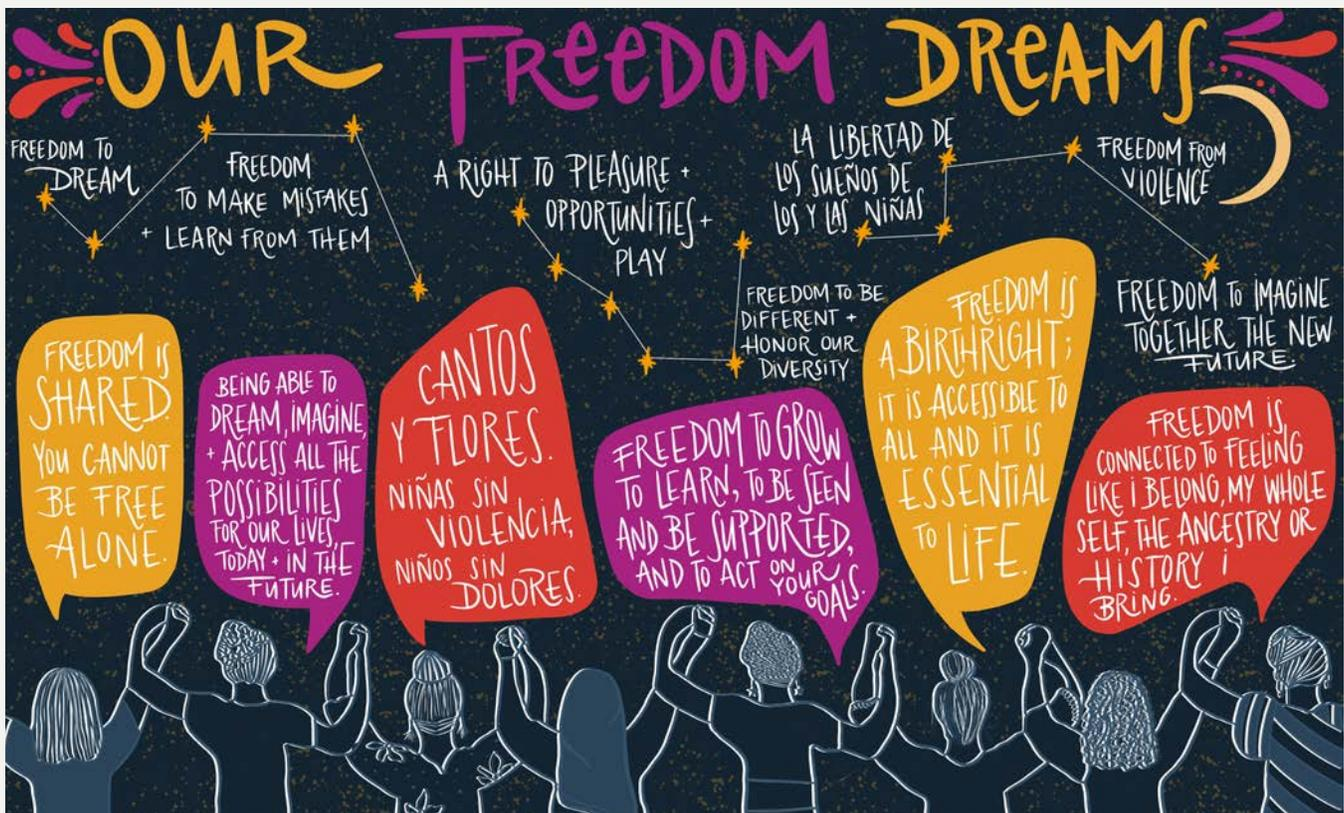 OUR FREEDOM DREAMS
FREEDOM TO
DREAM
FREEDOM
TO MAKE MISTAKES
+ LEARN FROM THEM
A RIGHT TO PLEASURE +
OPPORTUNITIES +
PLAY
LA LIBERTAD DE
LOS SUEÑOS DE
LOS Y LAS NIÑAS
FREEDOM FROM
VIOLENCE
FREEDOM TO BE
DIFFERENT +
HONOR OUR
DIVERSITY
FREEDOM TO IMAGINE
TOGETHER THE NEW
FUTURE.
FREEDOM IS
SHARED.
YOU CANNOT
BE FREE
ALONE.
BEING ABLE TO
DREAM, IMAGINE,
+ ACCESS ALL THE
POSSIBILITIES
FOR OUR LIVES,
TODAY + IN THE
FUTURE.
CANTOS
Y FLORES.
NIÑAS SIN
VIOLENCIA,
NIÑOS SIN
DOLORES.
FREEDOM TO GROW
TO LEARN, TO BE SEEN
AND BE SUPPORTED,
AND TO ACT ON
YOUR
GOALS.
FREEDOM IS
A BIRTHRIGHT;
IT IS ACCESSIBLE TO
ALL AND IT IS
ESSENTIAL
TO LIFE.
FREEDOM IS
CONNECTED TO FEELING
LIKE I BELONG, MY WHOLE
SELF, THE ANCESTRY OR
HISTORY I
BRING.